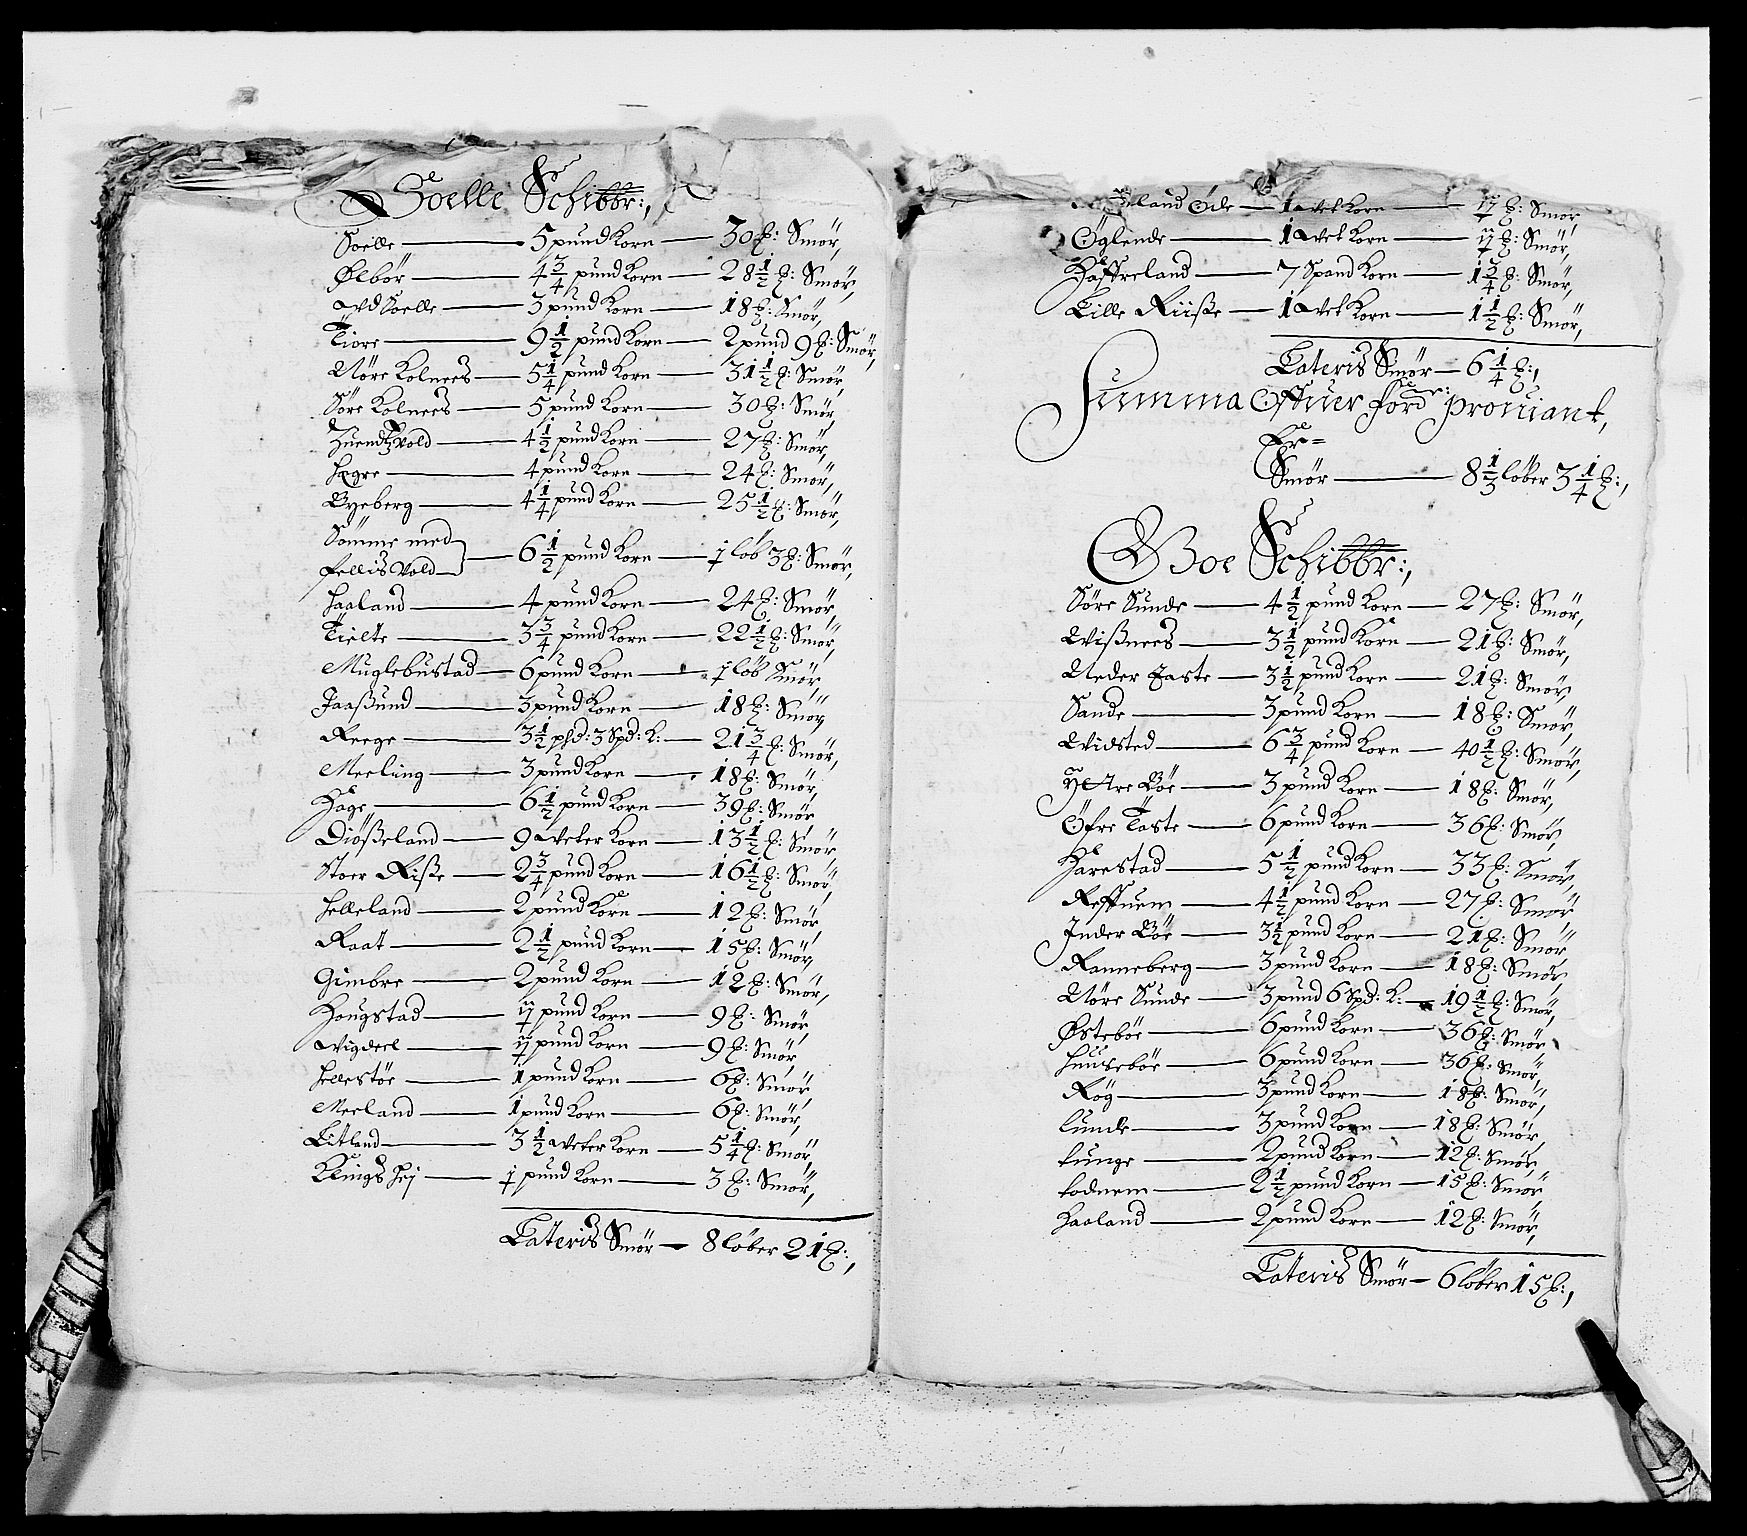 Soelle Schibbr:,
Soelle — 5 pund Korn — 30 ℔: Smör,
Ølbör — 4 3/4 pund Korn — 28 1/2 ℔: Smör,
Ydsoelle — 3 pund Korn — 18 ℔: Smör,
Tiore — 9 1/2 pund Korn — 2 pund 9 ℔: Smör,
Nöre Kolnees — 5 1/4 pund Korn — 31 1/2 ℔: Smör
Söre Kolnees — 5 pund Korn — 30 ℔: Smör,
Huendtzvold — 4 1/2 pund Korn — 27 ℔: Smör,
Hegre — 4 pund Korn — 24 ℔: Smör,
Byeberg — 4 1/4 pund Korn — 25 1/2 ℔: Smör,
Sömme med
Fellisvold — 6 1/2 pund Korn — 1 löb 3 ℔: Smör,
Haaland — 4 pund Korn — 24 ℔: Smör,
Tielte — 3 3/4 pund Korn — 22 1/2 ℔: Smör,
Muglebustad — 6 pund Korn — 1 löb Smör
Jaaßund — 3 pund Korn — 18 ℔: Smör,
Reege — 3 1/2 phd: 3 Spd: K: — 21 3/4 ℔: Smör,
Meeling — 3 pund Korn — 18 ℔: Smör,
Hage — 6 1/2 pund Korn — 39 ℔: Smör
Diößeland — 9 Veter Korn — 13 1/2 ℔: Smör
Stoer Riße — 2 3/4 pund Korn — 16 1/2 ℔: Smör,
Helleland — 2 pund Korn — 12 ℔: Smör
Raat — 2 1/2 pund Korn — 15 ℔: Smör,
Gimbre — 2 pund Korn — 12 ℔: Smör,
Hougstad — 1½ pund Korn — 9 ℔: Smör
Vigdeel — 1½ pund Korn — 9 ℔: Smör
Hellestöe — 1 pund Korn — 6 ℔: Smör
Meeland — 1 pund Korn — 6 ℔: Smör,
Litland — 3 1/2 Veter Korn — 5 1/4 ℔: Smör,
Klingshej — ½ pund Korn — 3 ℔: Smör,
Lateris Smör — 8 löber 21 ℔:,
land Øde — 1 Vet Korn — 1½ ℔: Smör
Öglende — 1 Vet Korn — 1½ ℔: Smör,
Haffreland — 7 Spand Korn — 1 3/4 ℔: Smör,
Lille Riiße — 1 Vet Korn — 1 1/2 ℔: Smör,
Lateris Smör — 6 1/4 ℔:,
Summa Offuer fordr: proviant,
Er=
Smör — 8 1/3 löber 3 1/4 ℔:,
Goe Schibbr:,
Söre Sunde — 4 1/2 pund Korn — 27 ℔: Smör,
Wißnees — 3 1/2 pund Korn — 21 ℔: Smör,
Neder Taste — 3 1/2 pund Korn — 21 ℔: Smör,
Sande — 3 pund Korn — 18 ℔: Smör,
Widsted — 6 3/4 pund Korn — 40 1/2 ℔: Smör,
Yttre Böe — 3 pund Korn — 18 ℔: Smör,
Öfre Taste — 6 pund Korn — 36 ℔: Smör,
Harestad — 5 1/2 pund Korn — 33 ℔: Smör,
Reffuem — 4 1/2 pund Korn — 27 ℔: Smör
Inder Böe — 3 1/2 pund Korn — 21 ℔: Smör
Ranneberg — 3 pund Korn — 18 ℔: Smör
Nöre Sunde — 3 pund 6 Spd: K: — 19 1/2 ℔: Smör,
Østeböe — 6 pund Korn — 36 ℔: Smör
Huuseböe — 6 pund Korn — 36 ℔: Smör,
Rög — 3 pund Korn — 18 ℔: Smör,
Lunde — 3 pund Korn — 18 ℔: Smör,
Tunge — 2 pund Korn — 12 ℔: Smör,
Todnem — 2 1/2 pund Korn — 15 ℔: Smör
Haaland — 2 pund Korn — 12 ℔: Smör,
Lateris Smör — 6 löber 15 ℔:,